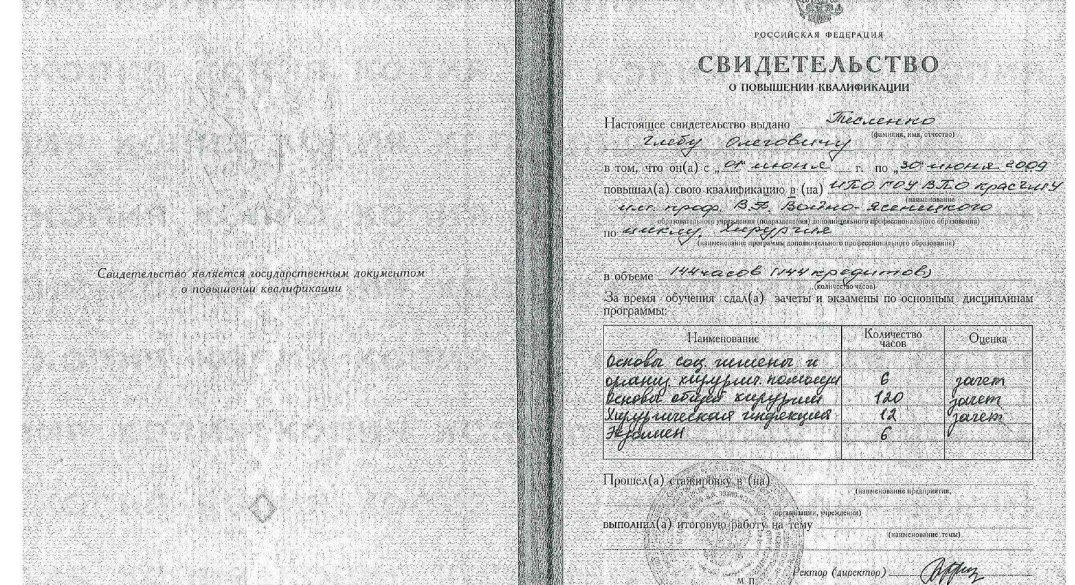 Свидетельство является государственным документом
о повышении квалификации
РОССИЙСКАЯ ФЕДЕРАЦИЯ
СВИДЕТЕЛЬСТВО
О ПОВЫШЕНИИ КВАЛИФИКАЦИИ
Настоящее свидетельство выдано Тесленко
(фамилия, имя, отчество)
Глебу Олеговичу
в том, что он(а) с „01" июня г. по „30" июня 2009
повышал(а) свою квалификацию в (на) ИПО ГОУ ВПО КрасГМУ
(наименование
им. проф. В.Ф. Войно-Ясенецкого
образовательного учреждения (подразделения) дополнительного профессионального образования)
по циклу, Хирургия
(наименование программы дополнительного профессионального образования)
в объеме 144 часов (144 кредитов)
(количество часов)
За время обучения сдал(а) зачеты и экзамены по основным дисциплинам
программы:
Наименование Количество часов Оценка
Основы соц. гигиены и
организ. хирургич. помощи 6 зачет
Основы общей хирургии 120 зачет
Хирургическая инфекция 12 зачет
Экзамен 6
Прошел(а) стажировку в (на)
(наименование предприятия,
организации, учреждения)
выполнил(а) итоговую работу на тему
(наименование темы)
Ректор (директор)
М. П.